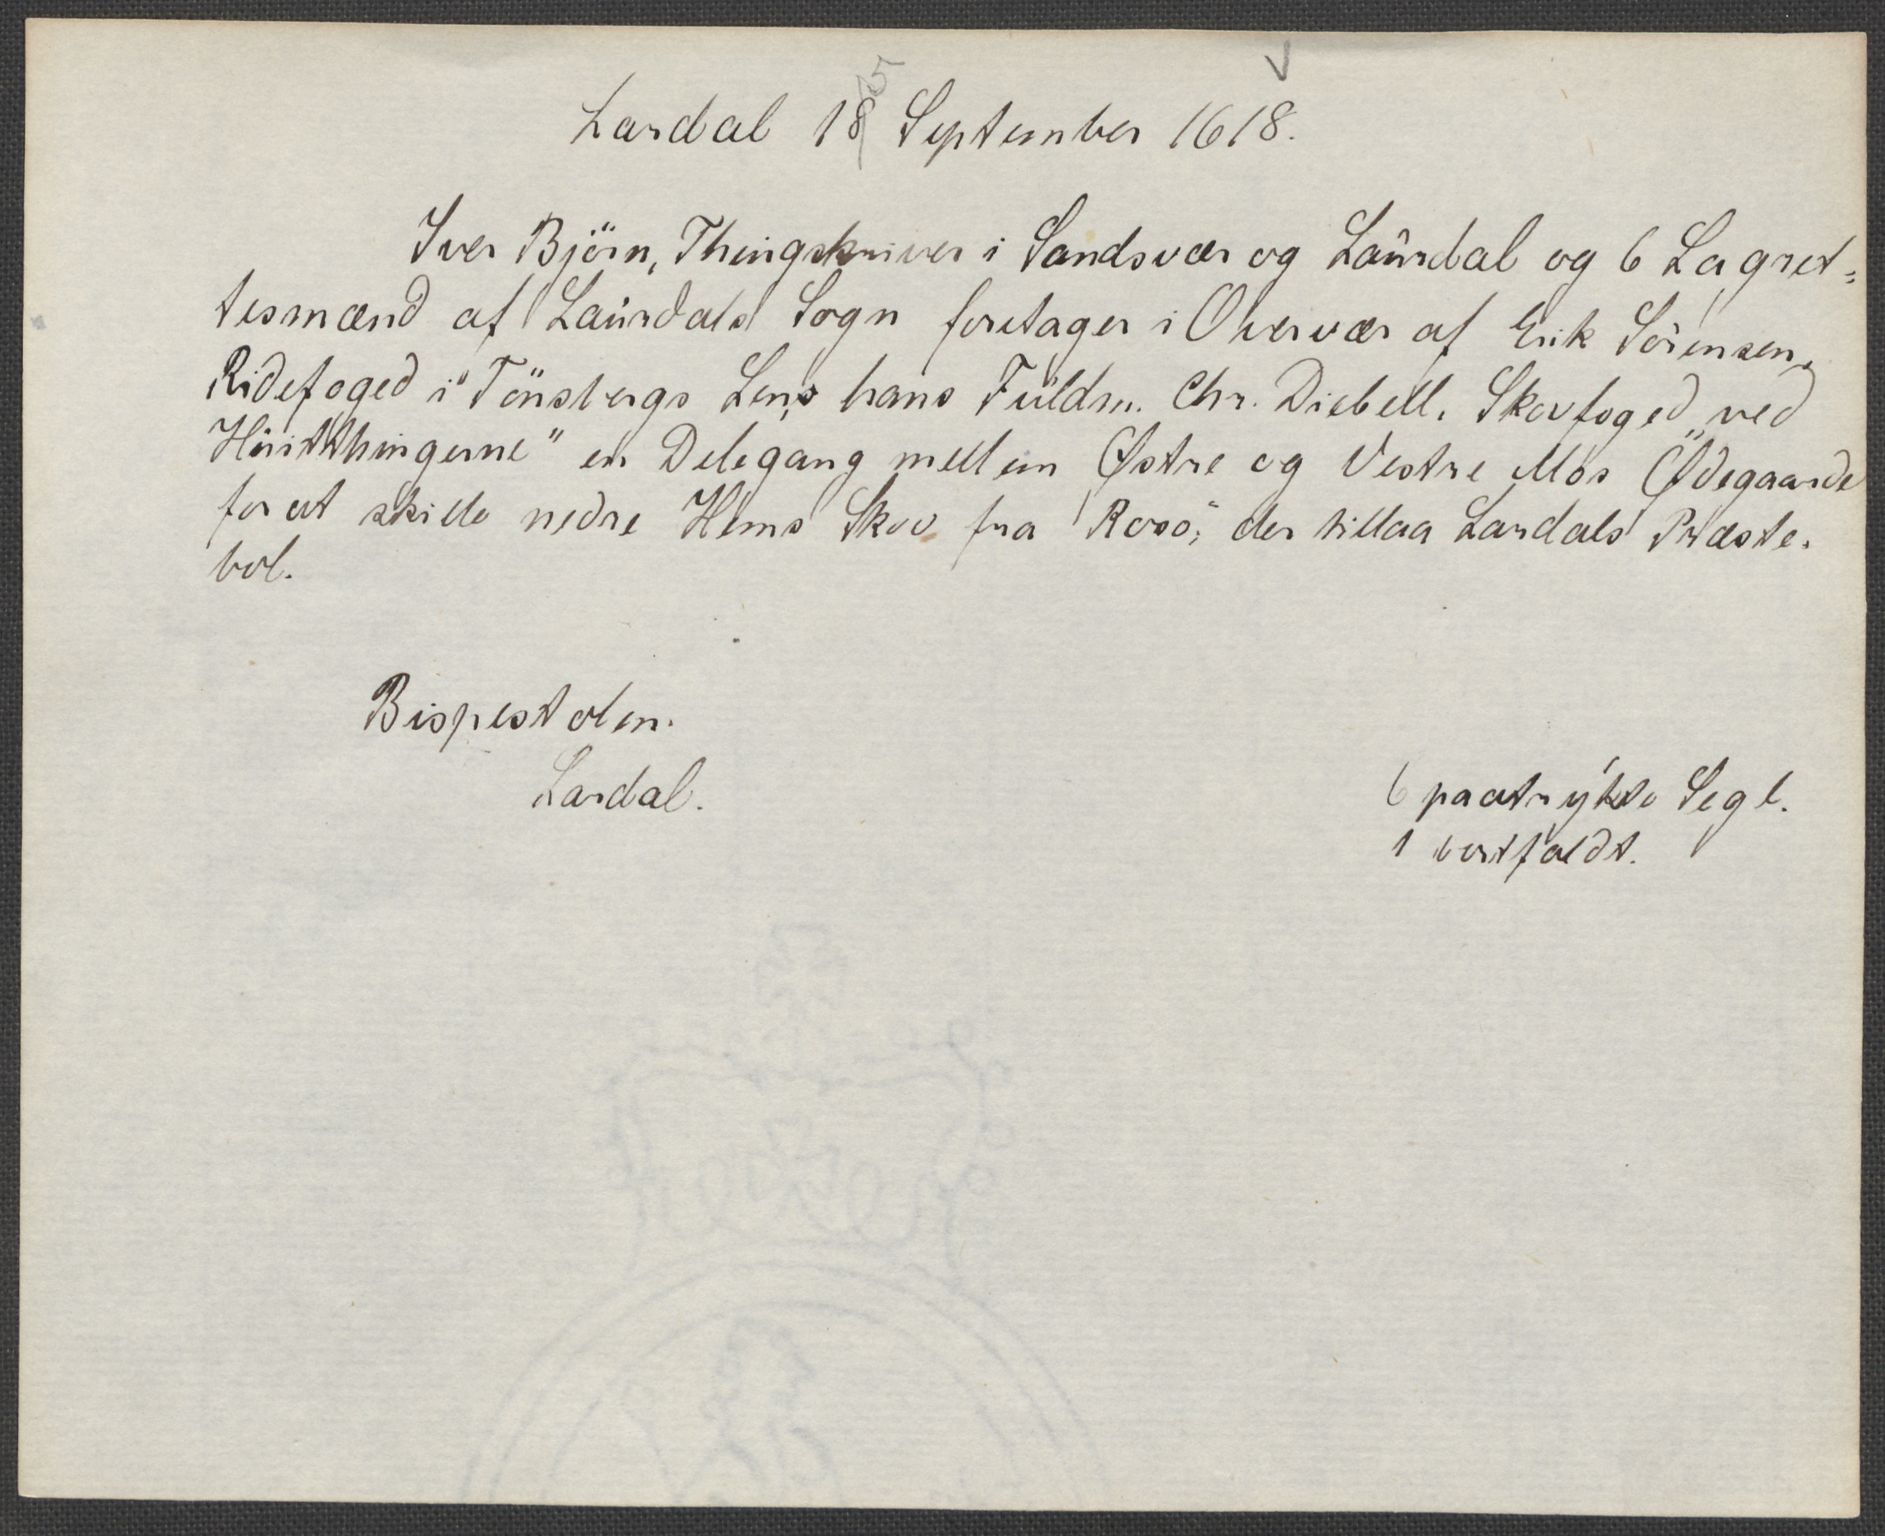 Lardal 18 September 1618.
5
Iver Björn, Thingskriver i Sandsvær og Laurdal og 6 Lagret-
tesmænd af Laurdals Sogn foretager i Overvær af Erik Sörensen,
Ridefoged i Tönsbergs Len, hans Fuldm. Chr. Diebell. Skovfoged ved
thingerne" en Delegang mellem Østre og Vestre Mos Ødegaarde
for at skille nedre Hems Skov fra Rosö, der tillaa Lardals Præste-
bol.
Bispestolen.
Lardal.
6 paatrykte Segl.
1 bortfaldt.